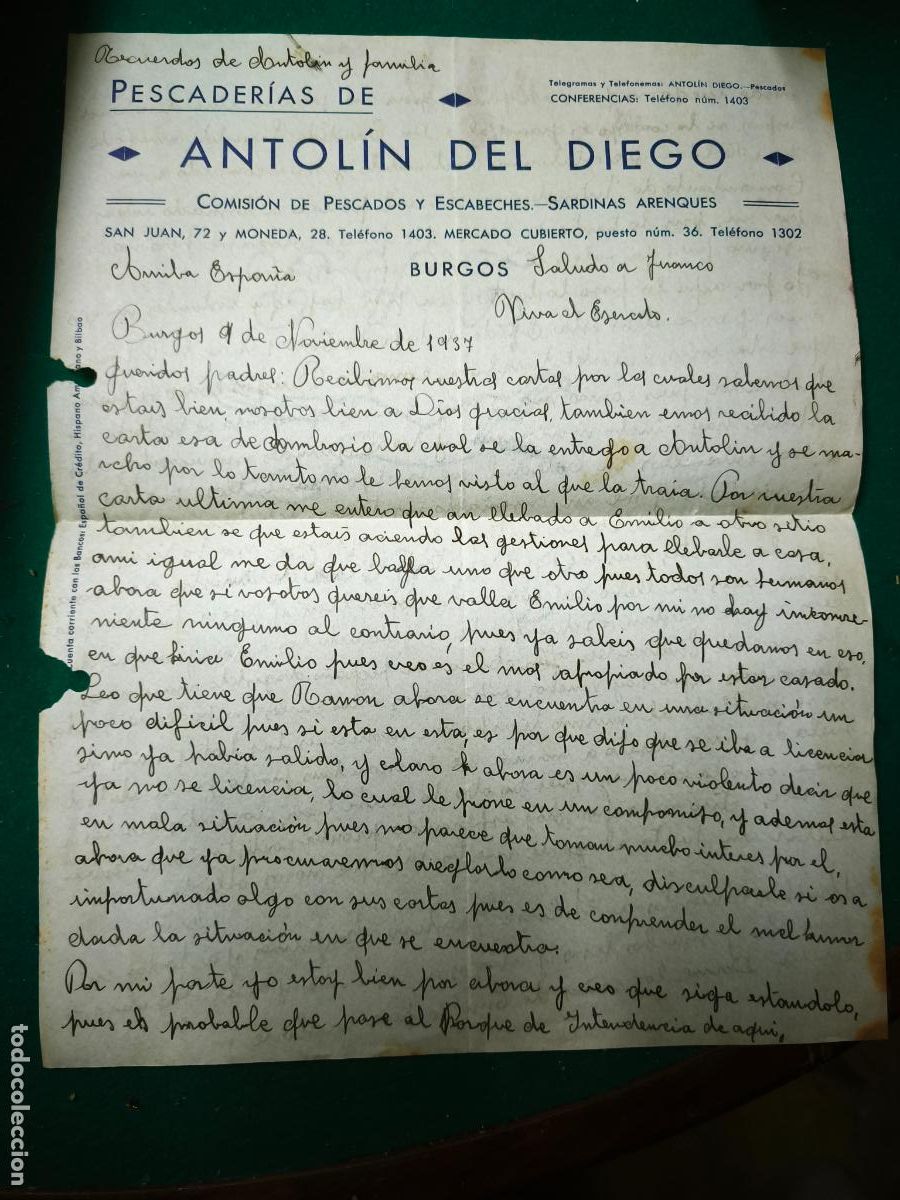 Recuerdos de Antolin y familia
PESCADERÍAS DE
Telegramas y Telefonemas: ANTOLÍN DIEGO.—Pescados
CONFERENCIAS: Teléfono núm. 1403
ANTOLÍN DEL DIEGO
COMISIÓN DE PESCADOS Y ESCABECHES.—SARDINAS ARENQUES
SAN JUAN, 72 y MONEDA, 28. Teléfono 1403. MERCADO CUBIERTO, puesto núm. 36. Teléfono 1302
Arriba España BURGOS Saludo a Franco
Viva el Ejercito.
Burgos 9 de Noviembre de 1937
Queridos padres: Recibimos vuestras cartas por las cuales sabemos que
estais bien, nosotros bien a Dios gracias, tambien emos recibido la
carta esa de Ambrosio la cual se la entrego a Antolin y se mar-
cho por lo tanto no le hemos visto al que la traia. Por vuestra
carta ultima me entero que an llebado a Emilio a otro sitio
tambien se que estais aciendo las gestiones para llebarle a casa,
ami igual me da que balla uno que otro pues todos son hermanos
ahora que si vosotros quereis que valla Emilio por mi no hay inconve-
niente ninguno al contrario, pues ya sabeis que quedamos en eso,
en que iria Emilio pues creo es el mas apropiado por estar casado.
Leo que tiene que Ramon ahora se encuentra en una situación un
poco dificil pues si esta en esta, es por que dijo que se iba a licenciar
sino ya habia salido, y claro ahora es un poco violento decir que
ya no se licencia, lo cual le pone en un compromiso, y ademas esta
en mala situación pues no parece que toman mucho interes por el,
ahora que ya procuraremos areglarlo como sea, disculparle si os a
importunado algo con sus cartas pues es de conprender el mal humor
dada la situación en que se encuentra.
Por mi parte yo estoy bien por ahora y creo que siga estandolo,
pues es probable que pase al Parque de Intendencia de aqui,
cuenta corriente con los Bancos: Español de Crédito, Hispano Americano y Bilbao
todocoleccion